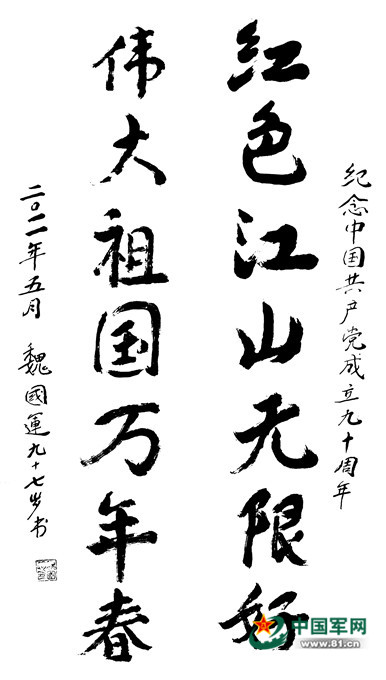 纪念中国共产党成立九十周年
红色江山无限好
伟大祖国万年春
二〇一一年五月 魏國運九十七岁书
中国军网
www.81.cn